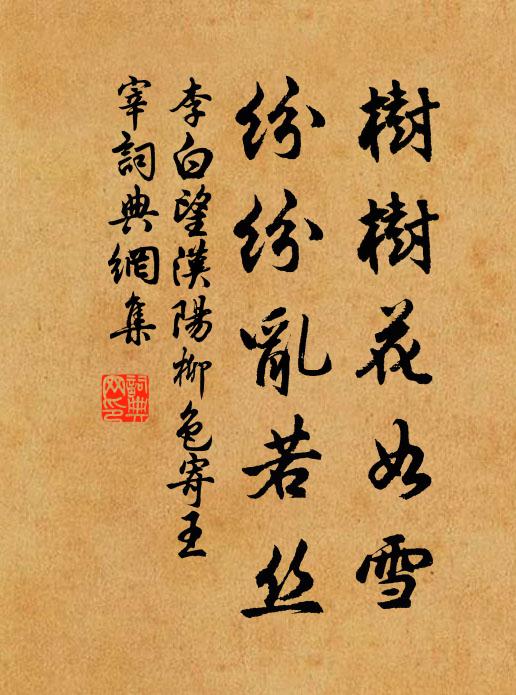 樹樹花如雪
紛紛亂若丝
李白望漢陽柳色寄王
宰詞典網集
詞典
网印